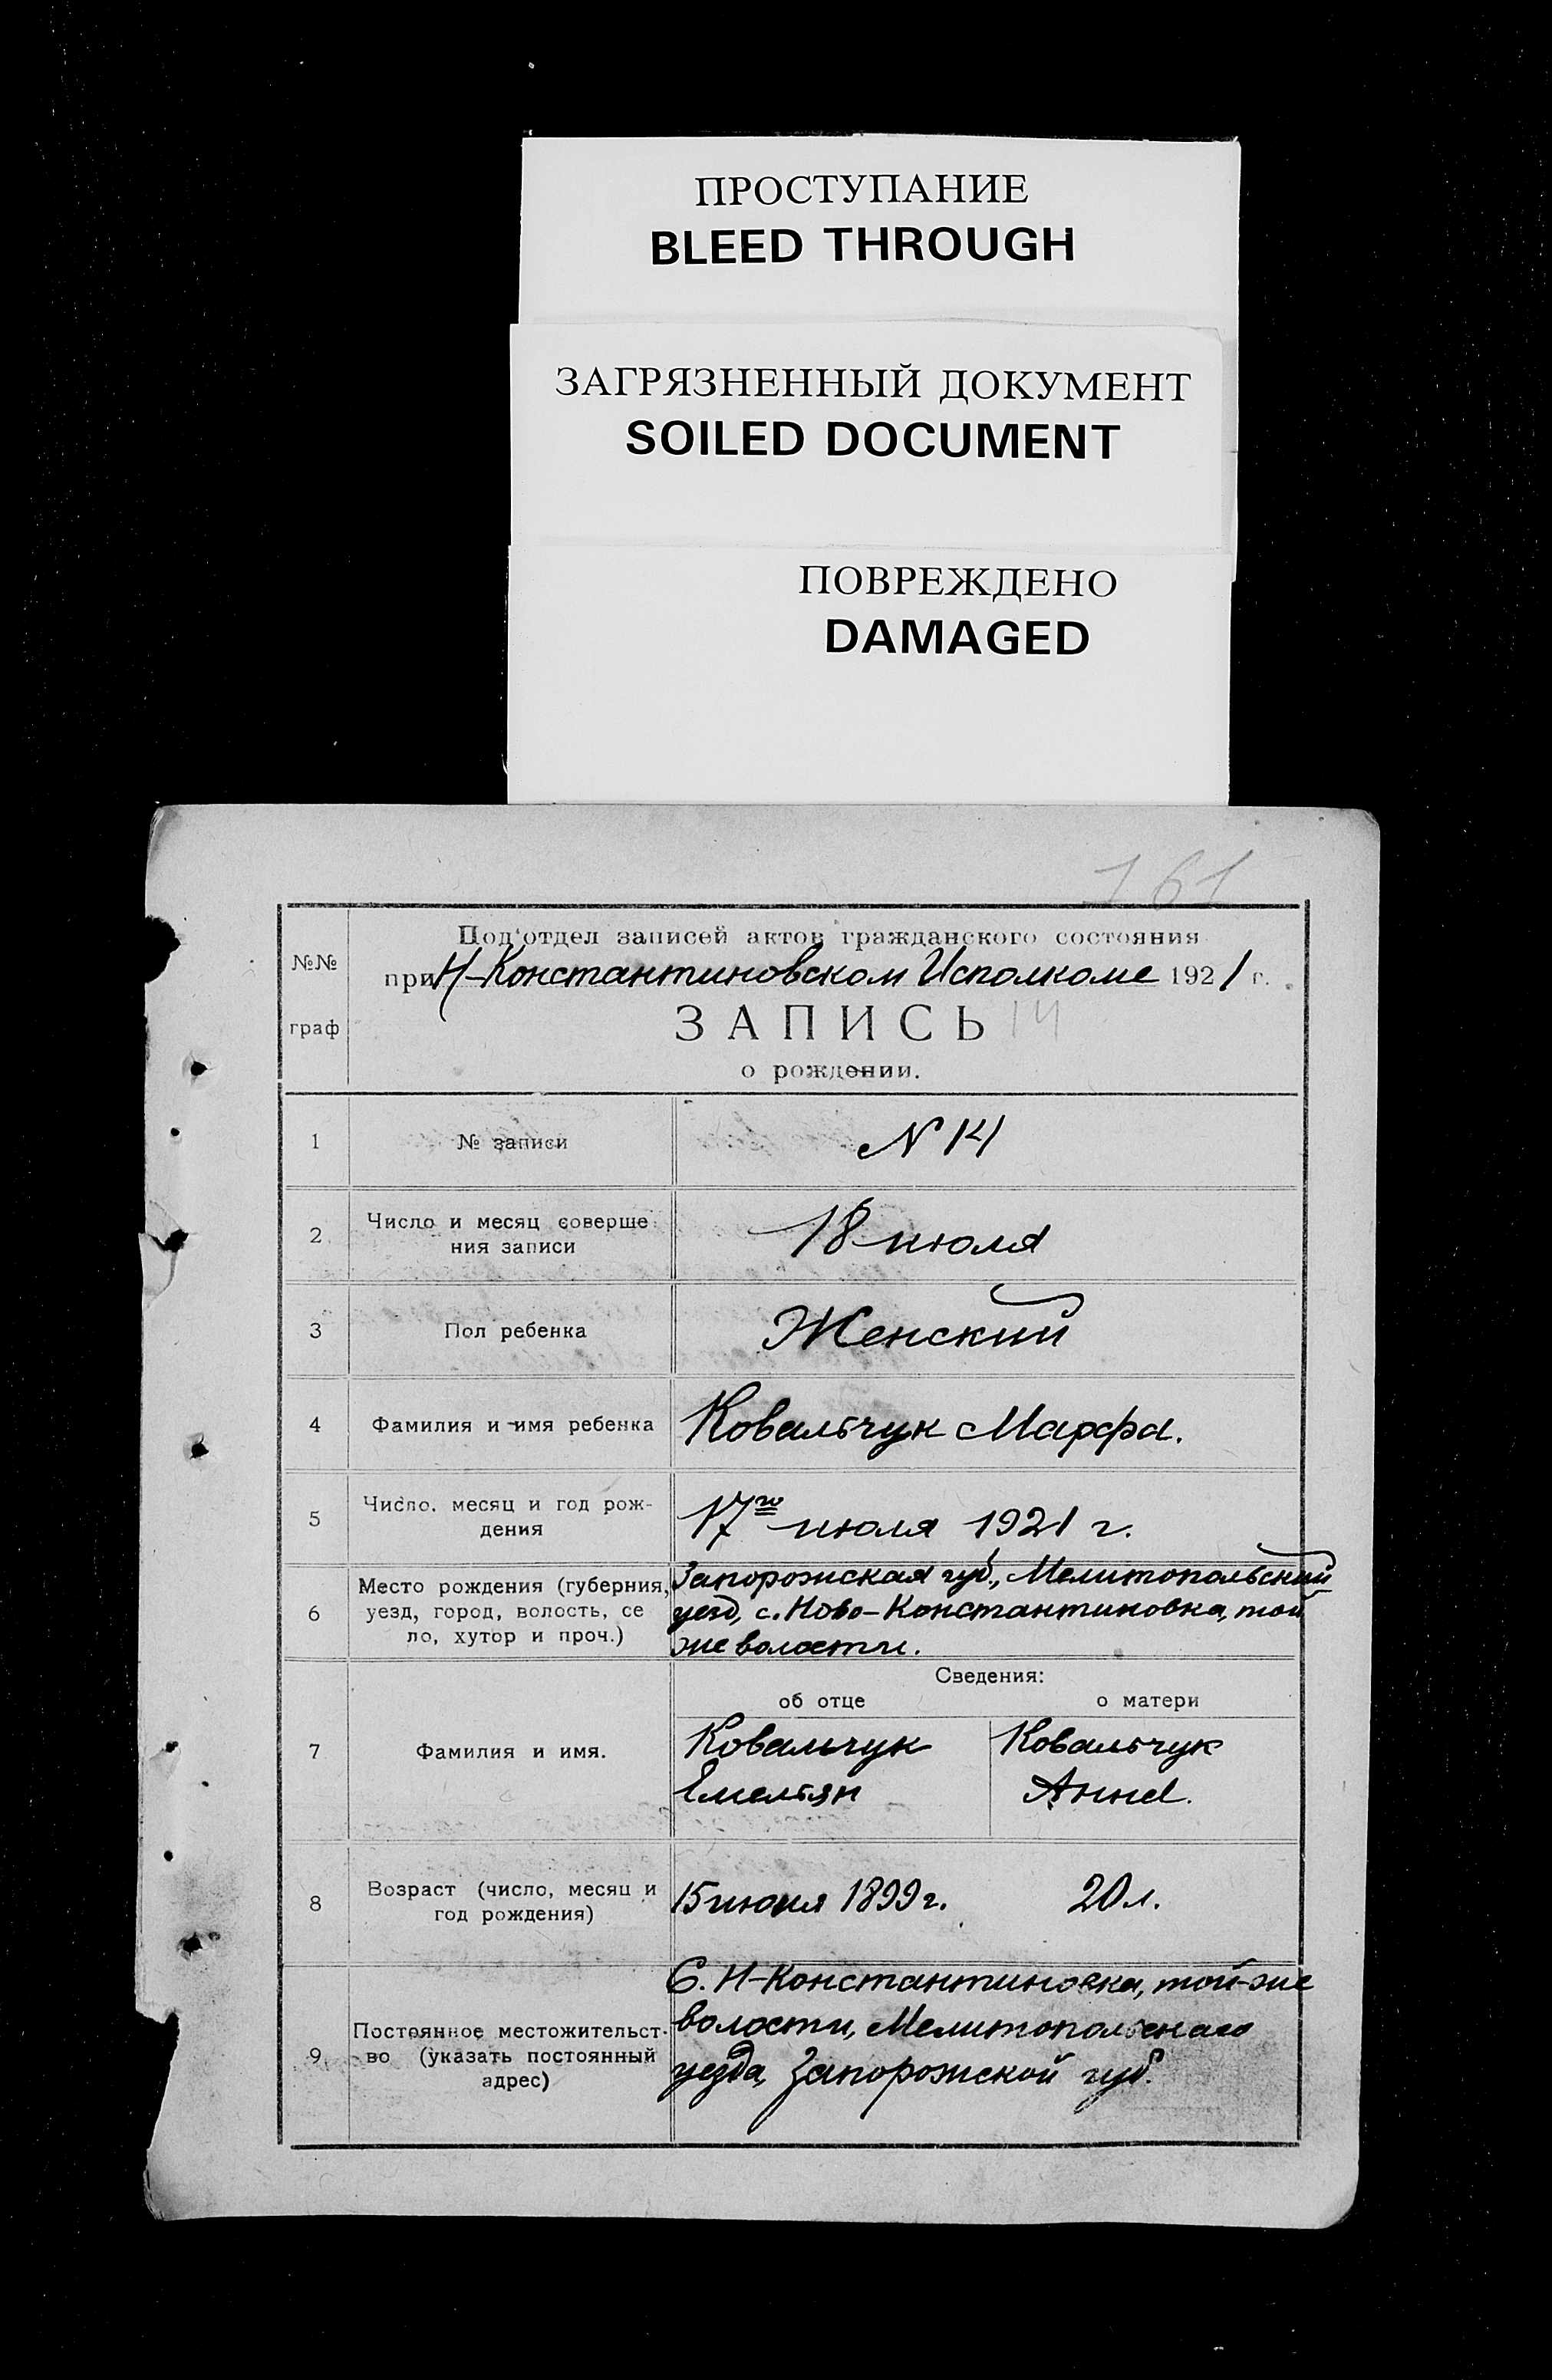 ПРОСТУПАНИЕ
BLEED THROUGH
ЗАГРЯЗНЕННЫЙ ДОКУМЕНТ
SOILED DOCUMENT
ПОВРЕЖДЕНО
DAMAGED
161
№№ граф
Под'отдел записей актов гражданского состояния
при Н-Константиновском Исполкоме 1921 г.
ЗАПИСЬ 14
о рождении.
1 № записи N 14
2 Число и месяц соверше
ния записи
18 июля
3 Пол ребенка Женский
4 Фамилия и имя ребенка Ковальчук Марфа.
5 Число. месяц и год рож-
дения
17го июля 1921 г.
6 Место рождения (губерния,
уезд, город, волость, се
ло, хутор и проч.)
Запорожская губ., Мелитопольский
уезд, с. Ново-Константиновка, той
же волости.
Сведения:
об отце о матери
7 Фамилия и имя.
Ковальчук Ковальчук
Емельян Анна.
8 Возраст (число, месяц и
год рождения)
15 июля 1899 г. 20 л.
9 Постоянное местожительст-
во (указать постоянный
адрес)
С. Н-Константиновка, той-же
волости, Мелитопольскаго
уезда, Запорожской губ.